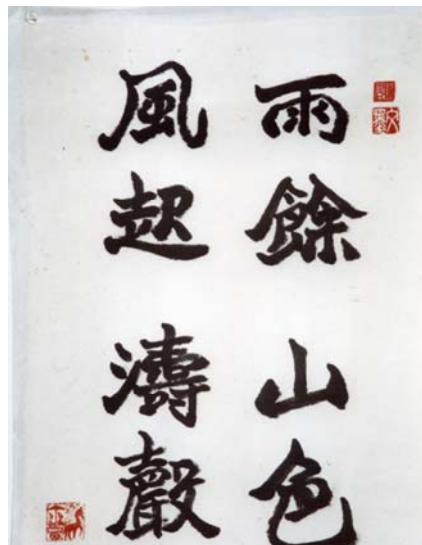 雨餘山色
風起濤聲